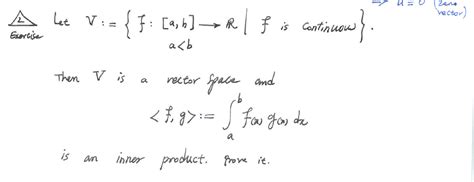 ⇒ u = 0 (zero
vector)
Exercise Let V := { f : [a,b] → ℝ | f is continuous }.
a<b
Then V is a vector space and
<f, g> := ∫_a^b f(x) g(x) dx
is an inner product. Prove it.